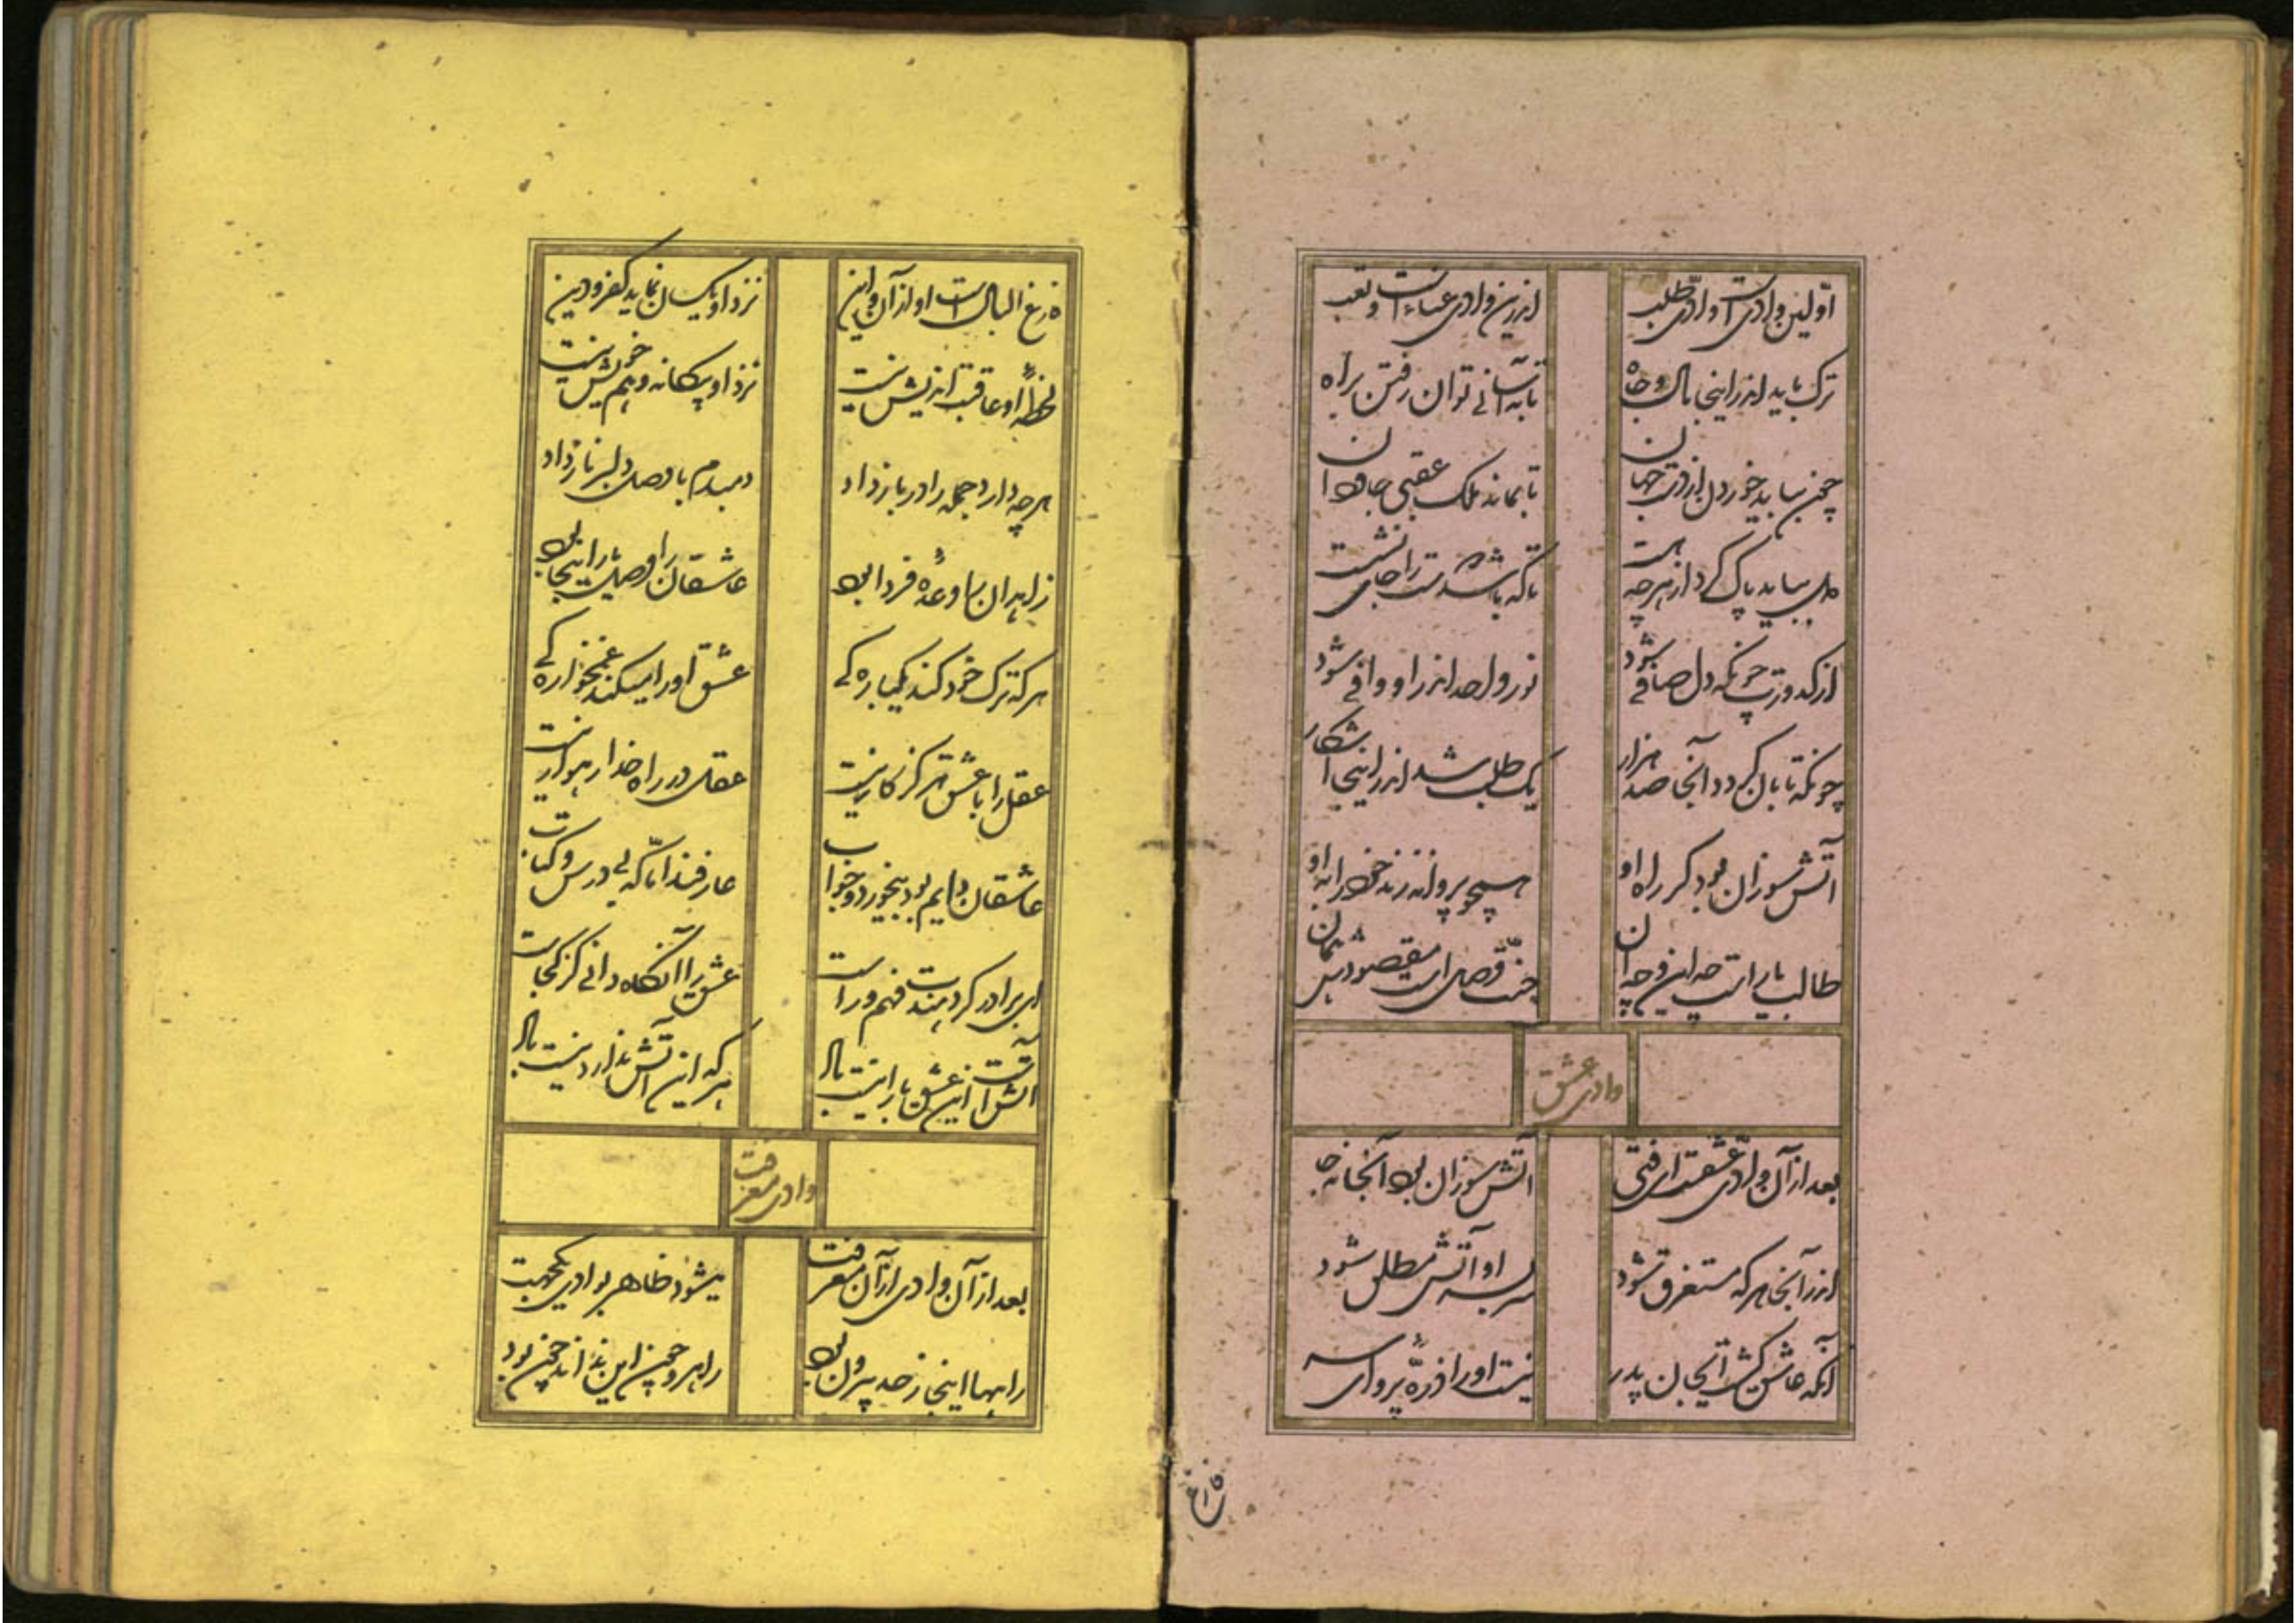 اولین وادیست وادی طلب اندرین وادی عناءست و تعب
ترک باید اندر اینجا مال و جاه تا به آسانی توان رفتن براه
چون بباید خوردل از دست جهان تا بماند ملک عقبی جاودان
دل بباید پاک کرد از هر چه هست تا که باشد مر ترا جای نشست
از کدورت چونکه دل صافی شود نور دل اندر او وافی شود
چونکه تابان گردد آنجا صد هزار یک طلب شد اندر اینجا آشکار
آتش سوزان بود گر راه او همچو پروانه زند خود را به او
طالب یارست چه این و چه آن جنت وصل است مقصودش همان
وادی عشق
بعد از آن وادی عشقست ای فتی آتش سوزان بود آنجا نه جا
اندر آنجا هر که مستغرق شود سر بسر او آتش مطلق شود
آنکه عاشق گشت ای جان پدر نیست او را ذرّۀ پروای سر
فارغ
فارغ البال است او از آن و این نزد او یکسان نماید کفر و دین
لحظۀ او عاقبت اندیش نیست نزد او بیگانه و هم خویش نیست
هر چه دارد جمله را در باز داد دمبدم با وصل دلبر ناز داد
زاهدان را وعدۀ فردا بود عاشقان را وصل یار اینجا بود
هر که ترک خود کند یکباره گی عشق او را میکند غمخواره گی
عقل را با عشق هرگز کار نیست عقل در راه خدا رهوار نیست
عاشقان دایم بود بیخورد و خواب عارفند اما که بی درس و کتاب
ای برادر گر دهندت فهم و راست عشق را آنگاه دانی کز کجاست
آتش است این عشق یارا نیست باد هر که این آتش ندارد نیست باد
وادی معرفت
بعد از آن وادی از آن معرفت میشود ظاهر بوادی یکجهت
راهها اینجا ز حد بیرون بود راهرو چون این بداند چون بود